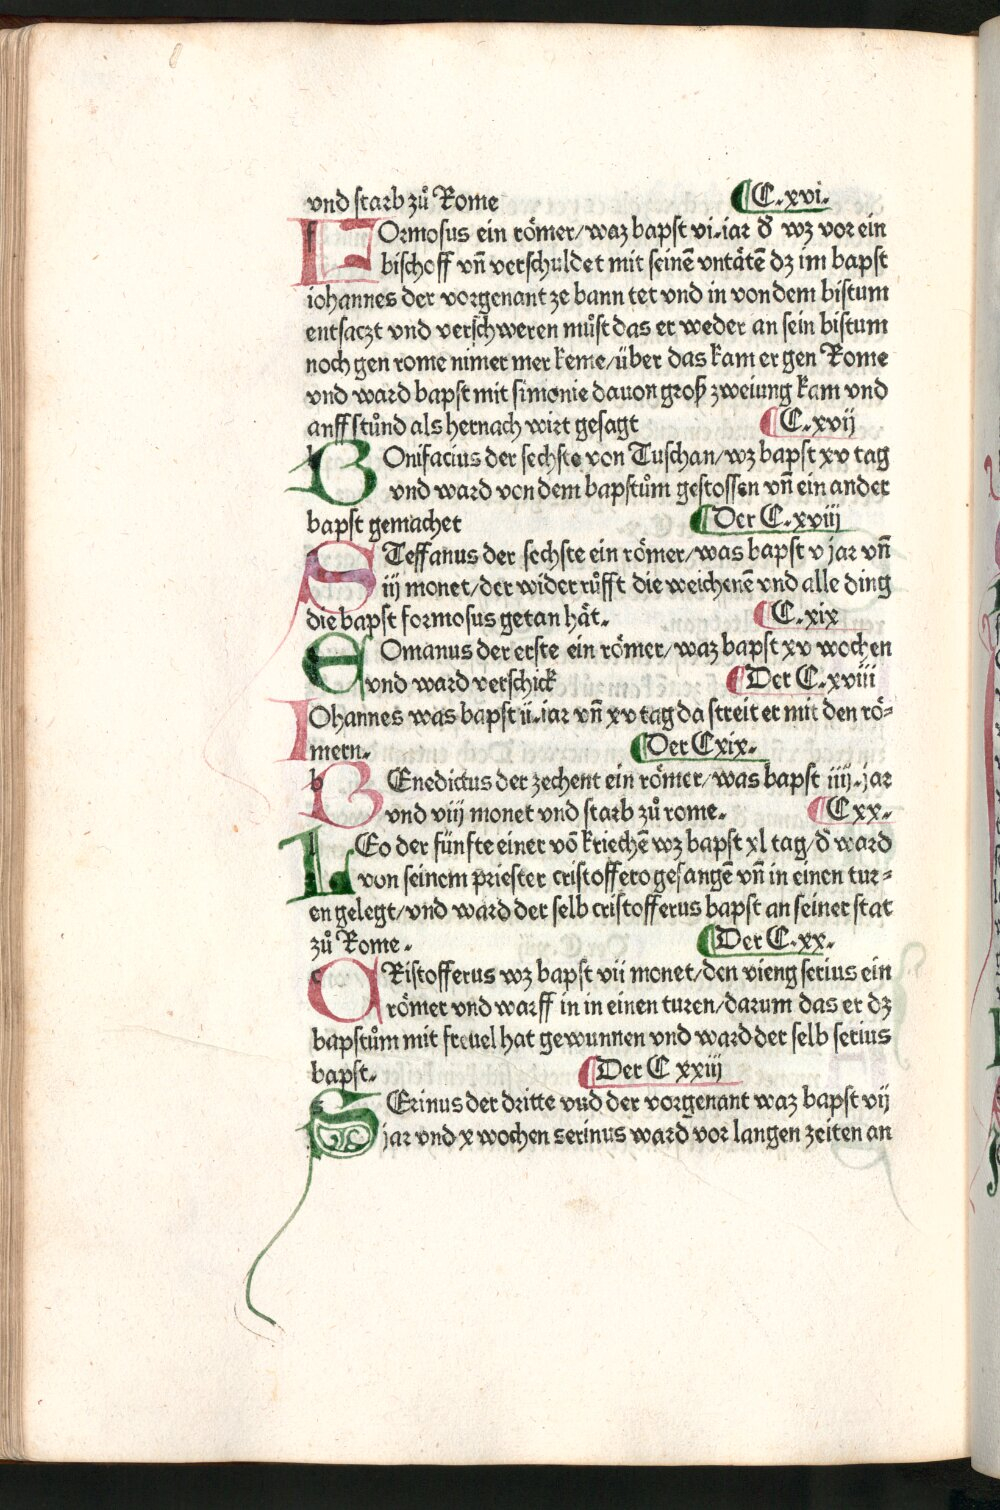 vnd starb zů Rome C.xvi.
FOrmosus ein römer/waz bapst vi.iar đ wz vor ein
bischoff vñ verschuldet mit seinē vntätē dz im bapst
iohannes der vorgenant ze bann tet vnd in von dem bistum
entsaczt vnd verschweren můst das er weder an sein bistum
noch gen rome nimer mer keme/über das kam er gen Rome
vnd ward bapst mit simonie dauon groß zweiung kam vnd
anff stůnd als hernach wirt gesagt C.xvij
BOnifacius der sechste von Tuschan/wz bapst xv tag
vnd ward von dem bapstům gestossen vñ ein ander
bapst gemachet Der C.xviij
STeffanus der sechste ein römer/was bapst v jar vñ
iij monet/der wider růfft die weichenē vnd alle ding
die bapst formosus getan hät. C.xix
ROmanus der erste ein römer/waz bapst xv wochen
vnd ward verschick Der C.xviii
IOhannes was bapst ii.iar vñ xv tag da streit er mit den rö-
mern. Der Cxix.
BEnedictus der zechent ein römer/was bapst iiij.jar
vnd viij monet vnd starb zů rome. Cxx.
LEo der fünfte einer vō kriechē wz bapst xl tag/đ ward
von seinem priester cristoffero gefangē vñ in einen tur-
en gelegt/vnd ward der selb cristofferus bapst an seiner stat
zů Rome. Der C.xx.
CRistofferus wz bapst vii monet/den vieng serius ein
römer vnd warff in in einen turen/darum das er dz
bapstům mit freuel hat gewunnen vnd ward der selb serius
bapst. Der C xxiij
SErinus der dritte vnd der vorgenant waz bapst vij
jar vnd x wochen serinus ward vor langen zeiten an